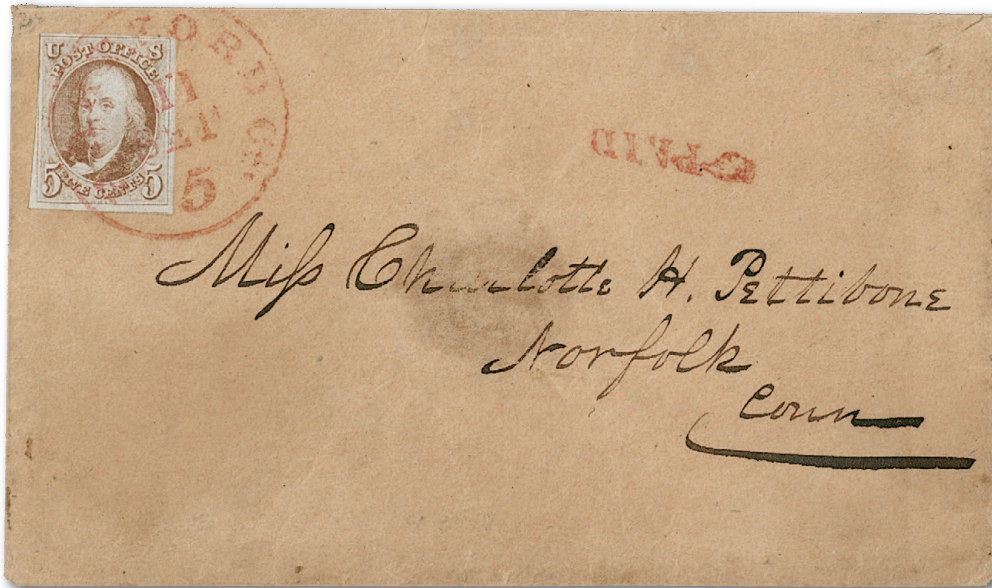 U S
POST OFFICE
5 FIVE CENTS 5
5
PAID
Miss Charlotte H. Pettibone
Norfolk
Conn